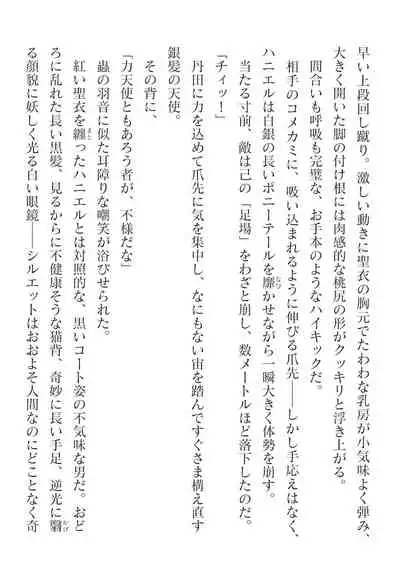 早い上段回し蹴り。激しい動きに聖衣の胸元でたわわな乳房が小気味よく弾み、
大きく開いた脚の付け根には肉感的な桃尻の形がクッキリと浮き上がる。
間合いも呼吸も完璧な、お手本のようなハイキックだ。
相手のコメカミに、吸い込まれるように伸びる爪先――しかし手応えはなく、
ハニエルは白銀の長いポニーテールを靡かせながら一瞬大きく体勢を崩す。
当たる寸前、敵は己の「足場」をわざと崩し、数メートルほど落下したのだ。
「チィッ！」
丹田に力を込めて爪先に気を集中し、なにもない宙を踏んですぐさま構え直す
銀髪の天使。
その背に、
「力天使ともあろう者が、不様だな」
蟲の羽音に似た耳障りな嘲笑が浴びせられた。
紅い聖衣を纏ったハニエルとは対照的な、黒いコート姿の不気味な男だ。おど
ろに乱れた長い黒髪、見るからに不健康そうな猫背、奇妙に長い手足、逆光に翳
る顔貌に妖しく光る白い眼鏡――シルエットはおおよそ人間なのにどことなく奇